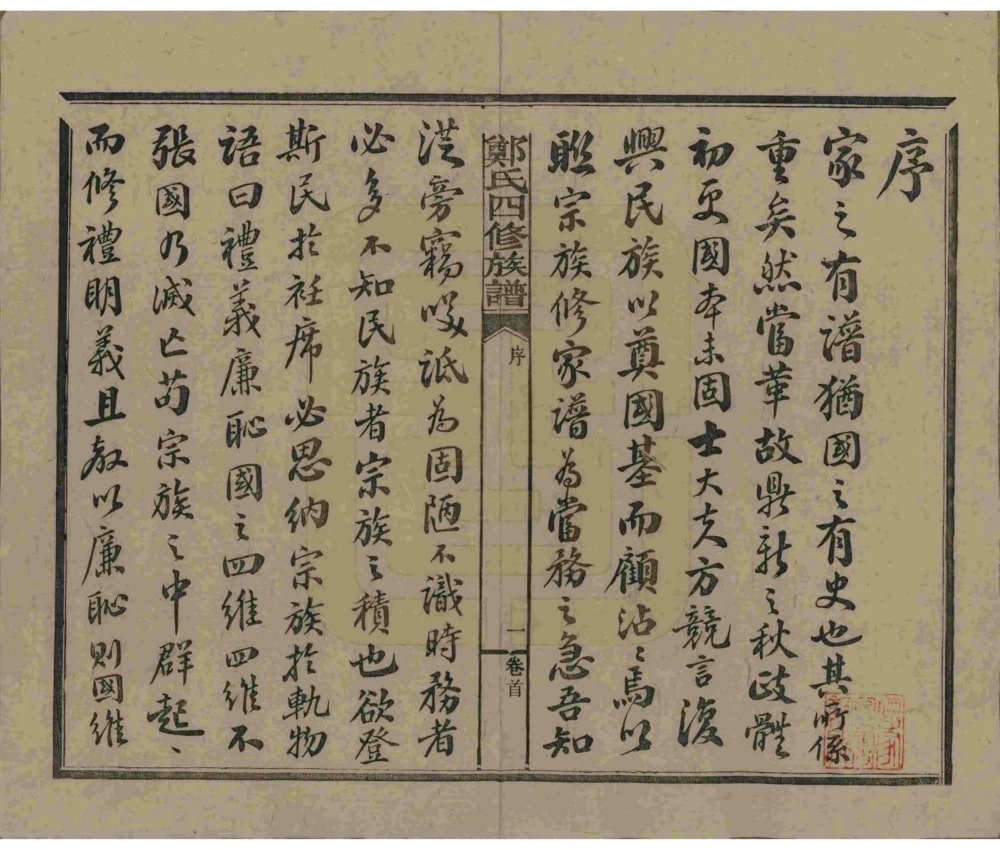 序
家之有譜猶國之有史也其所係
重矣然當革故鼎新之秋政體
初更國本未固士大夫方競言復
興民族以奠國基而顧沾沾焉以
聯宗族修家譜為當務之急吾知
鄭氏四修族譜
序
一
卷首
從旁竊唉詆為固陋不識時務者
必多不知民族者宗族之積也欲登
斯民於衽席必思納宗族於軌物
語曰禮義廉恥國之四維四維不
張國乃滅亡苟宗族之中群起、
而修禮明義且教以廉恥則國維